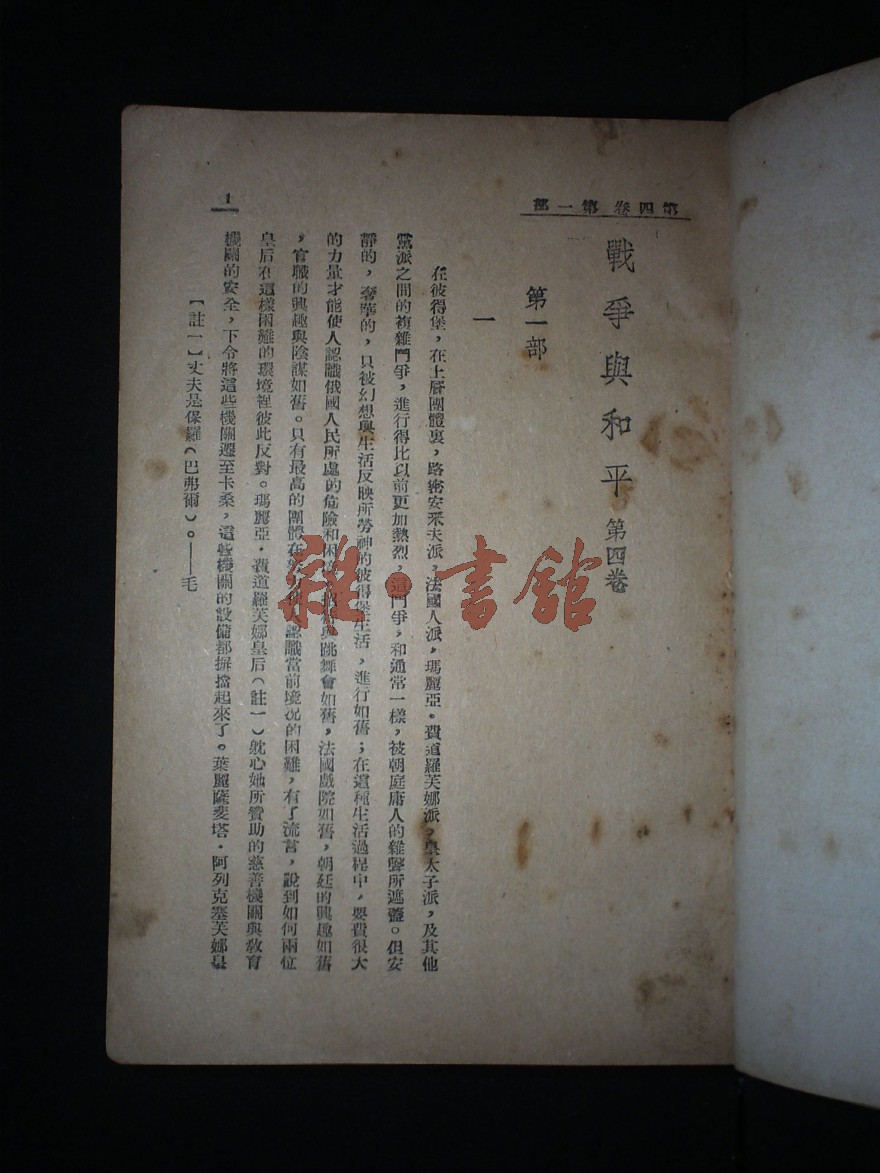 第四卷 第一部
1
戰爭與和平 第四卷
第一部
一
在彼得堡，在上層團體裏，路密安采夫派，法國人派，瑪麗亞·費道羅芙娜派，皇太子派，及其他
黨派之間的複雜鬥爭，進行得比以前更加熱烈，這鬥爭，和通常一樣，被朝庭庸人的雜聲所遮蓋。但安
靜的，奢華的，只被幻想與生活反映所勞神的彼得堡生活，進行如舊；在這種生活過程中，要費很大
的力量才能使人認識俄國人民所處的危險和困 與跳舞會如舊，法國戲院如舊，朝廷的興趣如舊
，官職的興趣與陰謀如舊。只有最高的團體在 認識當前境況的困難，有了流言，說到如何兩位
皇后在這樣困難的環境裡彼此反對。瑪麗亞·費道羅芙娜皇后（註一）躭心她所贊助的慈善機關與教育
機關的安全，下令將這些機關遷至卡桑，這些機關的設備都摒擋起來了。葉麗薩斐塔·阿列克塞芙娜皇
【註一】丈夫是保羅（巴弗爾）。——毛
雜·書館